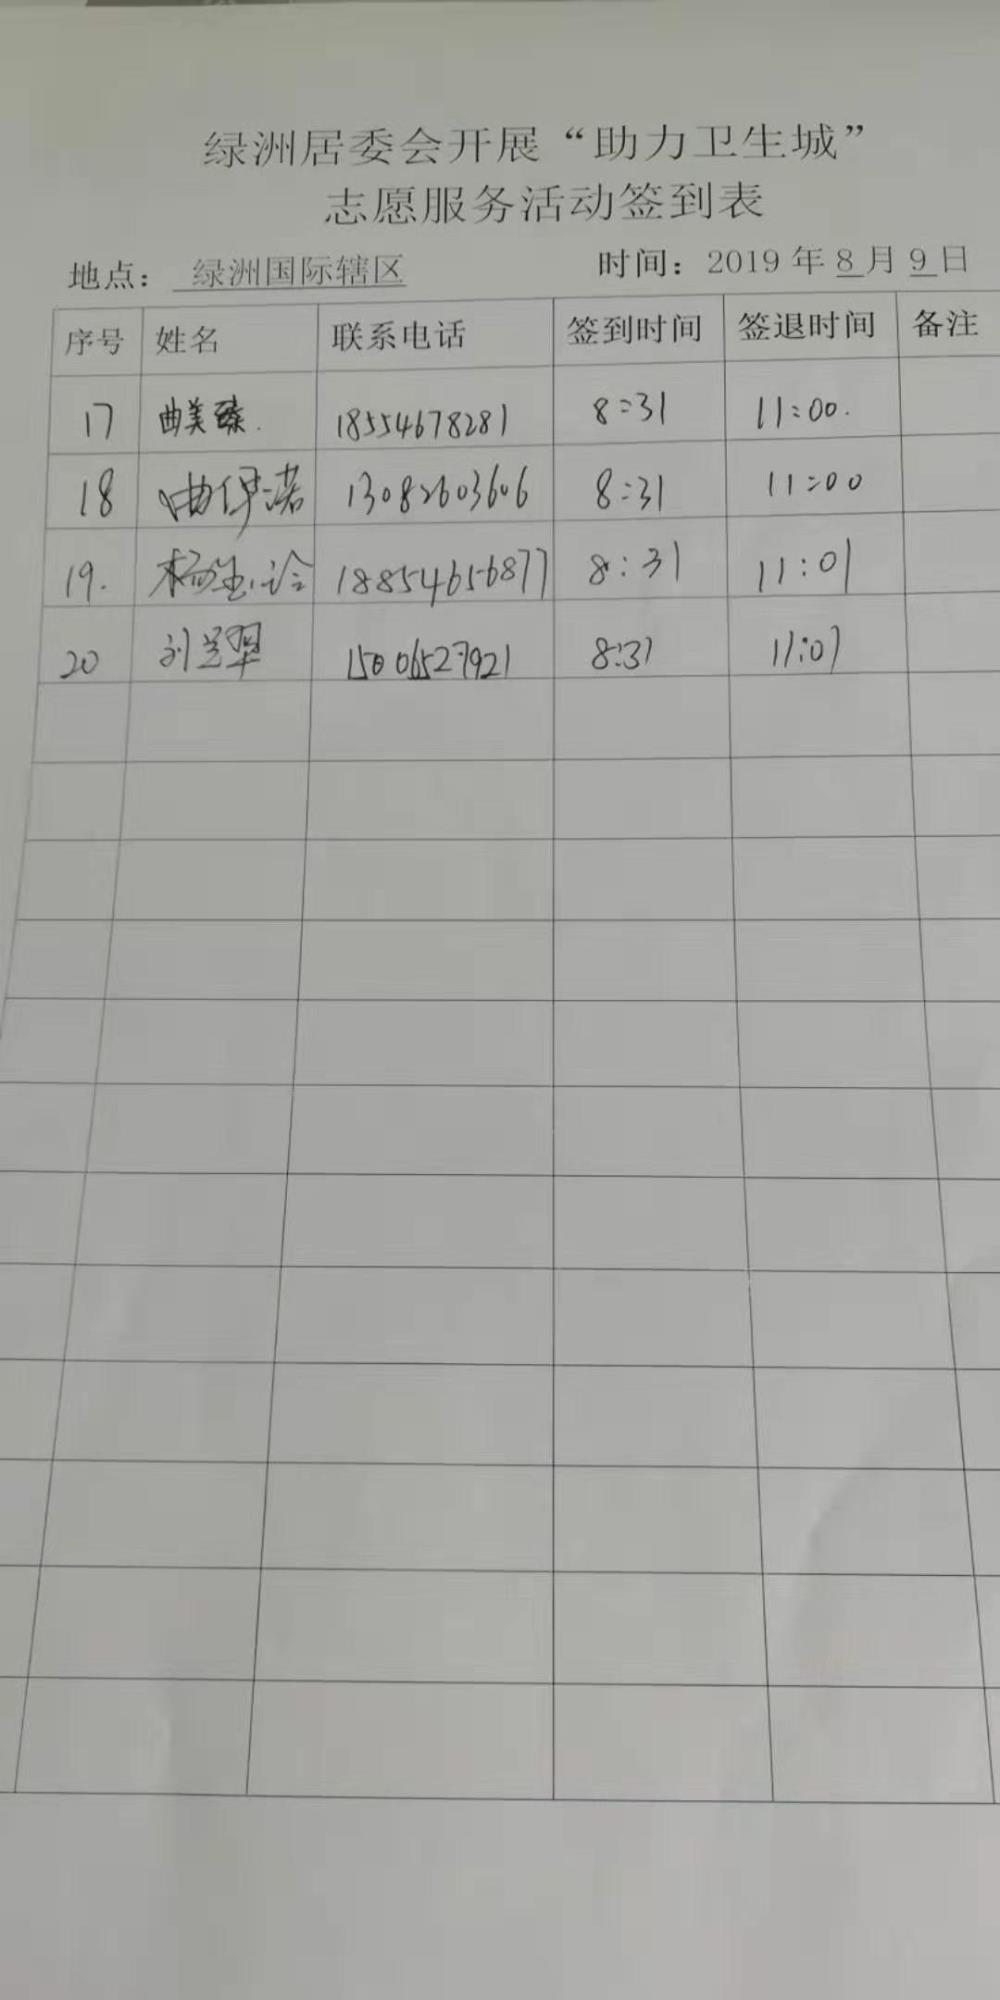 绿洲居委会开展“助力卫生城”
志愿服务活动签到表
地点： 绿洲国际辖区 时间：2019 年 8 月 9 日
序号 姓名 联系电话 签到时间 签退时间 备注
17 曲美臻. 18554678281 8:31 11:00.
18 曲伊诺 13082603606 8:31 11:00
19. 18854656877 8:31 11:01
20 15006527921 8:31 11:01